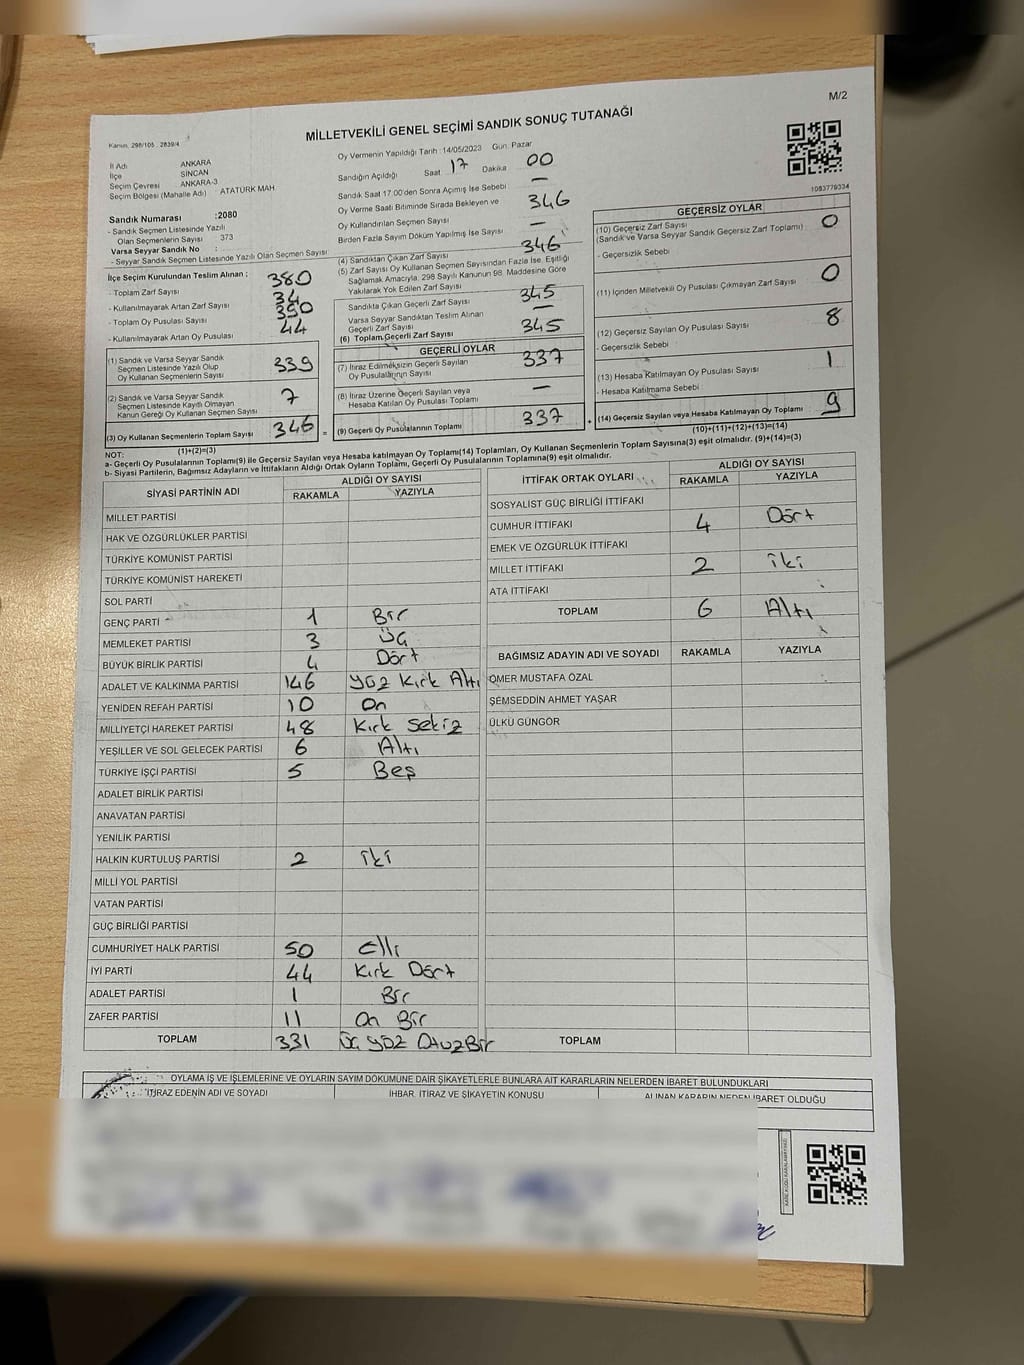 M/2
MİLLETVEKİLİ GENEL SEÇİMİ SANDIK SONUÇ TUTANAĞI
Kanun, 298/105 . 2839/4
İl Adı ANKARA
İlçe SİNCAN
Seçim Çevresi ANKARA-3
Seçim Bölgesi (Mahalle Adı) ATATÜRK MAH.
Sandık Numarası :2080
- Sandık Seçmen Listesinde Yazılı
Olan Seçmenlerin Sayısı 373
Varsa Seyyar Sandık No :
- Seyyar Sandık Seçmen Listesinde Yazılı Olan Seçmen Sayısı
Oy Vermenin Yapıldığı Tarih : 14/05/2023 Gün. Pazar
Sandığın Açıldığı Saat 17 Dakika 00
Sandık Saat 17.00'den Sonra Açımış İse Sebebi —
Oy Verme Saati Bitiminde Sırada Bekleyen ve
Oy Kullandırılan Seçmen Sayısı 346
Birden Fazla Sayım Döküm Yapılmış İse Sayısı —
1093779334
İlçe Seçim Kurulundan Teslim Alınan ;
- Toplam Zarf Sayısı 380
- Kullanılmayarak Artan Zarf Sayısı 34
- Toplam Oy Pusulası Sayısı 390
- Kullanılmayarak Artan Oy Pusulası 44
(1) Sandık ve Varsa Seyyar Sandık
Seçmen Listesinde Yazılı Olup
Oy Kullanan Seçmenlerin Sayısı 339
(2) Sandık ve Varsa Seyyar Sandık
Seçmen Listesinde Kayıtlı Olmayan
Kanun Gereği Oy Kullanan Seçmen Sayısı 7
(3) Oy Kullanan Seçmenlerin Toplam Sayısı 346
(1)+(2)=(3)
(4) Sandıktan Çıkan Zarf Sayısı 346
(5) Zarf Sayısı Oy Kullanan Seçmen Sayısından Fazla İse, Eşitliği
Sağlamak Amacıyla, 298 Sayılı Kanunun 98. Maddesine Göre
Yakılarak Yok Edilen Zarf Sayısı
Sandıkta Çıkan Geçerli Zarf Sayısı 345
Varsa Seyyar Sandıktan Teslim Alınan
Geçerli Zarf Sayısı —
(6) Toplam Geçerli Zarf Sayısı 345
GEÇERLİ OYLAR
(7) İtiraz Edilmeksizin Geçerli Sayılan
Oy Pusulalarının Sayısı 337
(8) İtiraz Üzerine Geçerli Sayılan veya
Hesaba Katılan Oy Pusulası Toplamı —
= (9) Geçerli Oy Pusulalarının Toplamı 337 +
GEÇERSİZ OYLAR
(10) Geçersiz Zarf Sayısı 0
(Sandık ve Varsa Seyyar Sandık Geçersiz Zarf Toplamı)
- Geçersizlik Sebebi
(11) İçinden Milletvekili Oy Pusulası Çıkmayan Zarf Sayısı 0
(12) Geçersiz Sayılan Oy Pusulası Sayısı 8
- Geçersizlik Sebebi
(13) Hesaba Katılmayan Oy Pusulası Sayısı 1
- Hesaba Katılmama Sebebi
(14) Geçersiz Sayılan veya Hesaba Katılmayan Oy Toplamı 9
(10)+(11)+(12)+(13)=(14)
NOT:
a- Geçerli Oy Pusulalarının Toplamı(9) ile Geçersiz Sayılan veya Hesaba katılmayan Oy Toplamı(14) Toplamları, Oy Kullanan Seçmenlerin Toplam Sayısına(3) eşit olmalıdır. (9)+(14)=(3)
b- Siyasi Partilerin, Bağımsız Adayların ve İttifakların Aldığı Ortak Oyların Toplamı, Geçerli Oy Pusulalarının Toplamına(9) eşit olmalıdır.
SİYASİ PARTİNİN ADI ALDIĞI OY SAYISI
RAKAMLA YAZIYLA
MİLLET PARTİSİ
HAK VE ÖZGÜRLÜKLER PARTİSİ
TÜRKİYE KOMÜNİST PARTİSİ
TÜRKİYE KOMÜNİST HAREKETİ
SOL PARTİ
GENÇ PARTİ 1 Bir
MEMLEKET PARTİSİ 3 Üç
BÜYÜK BİRLİK PARTİSİ 4 Dört
ADALET VE KALKINMA PARTİSİ 146 yüz Kırk Altı
YENİDEN REFAH PARTİSİ 10 On
MİLLİYETÇİ HAREKET PARTİSİ 48 Kırk Sekiz
YEŞİLLER VE SOL GELECEK PARTİSİ 6 Altı
TÜRKİYE İŞÇİ PARTİSİ 5 Beş
ADALET BİRLİK PARTİSİ
ANAVATAN PARTİSİ
YENİLİK PARTİSİ
HALKIN KURTULUŞ PARTİSİ 2 iki
MİLLİ YOL PARTİSİ
VATAN PARTİSİ
GÜÇ BİRLİĞİ PARTİSİ
CUMHURİYET HALK PARTİSİ 50 elli
İYİ PARTİ 44 Kırk Dört
ADALET PARTİSİ 1 Bir
ZAFER PARTİSİ 11 On Bir
TOPLAM 331 Üç yüz OtuzBir
İTTİFAK ORTAK OYLARI ALDIĞI OY SAYISI
RAKAMLA YAZIYLA
SOSYALİST GÜÇ BİRLİĞİ İTTİFAKI
CUMHUR İTTİFAKI 4 Dört
EMEK VE ÖZGÜRLÜK İTTİFAKI
MİLLET İTTİFAKI 2 iki
ATA İTTİFAKI
TOPLAM 6 Altı
BAĞIMSIZ ADAYIN ADI VE SOYADI RAKAMLA YAZIYLA
ÖMER MUSTAFA ÖZAL
ŞEMSEDDİN AHMET YAŞAR
ÜLKÜ GÜNGÖR
TOPLAM
OYLAMA İŞ VE İŞLEMLERİNE VE OYLARIN SAYIM DÖKÜMÜNE DAİR ŞİKAYETLERLE BUNLARA AİT KARARLARIN NELERDEN İBARET BULUNDUKLARI
İTİRAZ EDENİN ADI VE SOYADI İHBAR, İTİRAZ VE ŞİKAYETİN KONUSU ALINAN KARARIN NEDEN İBARET OLDUĞU